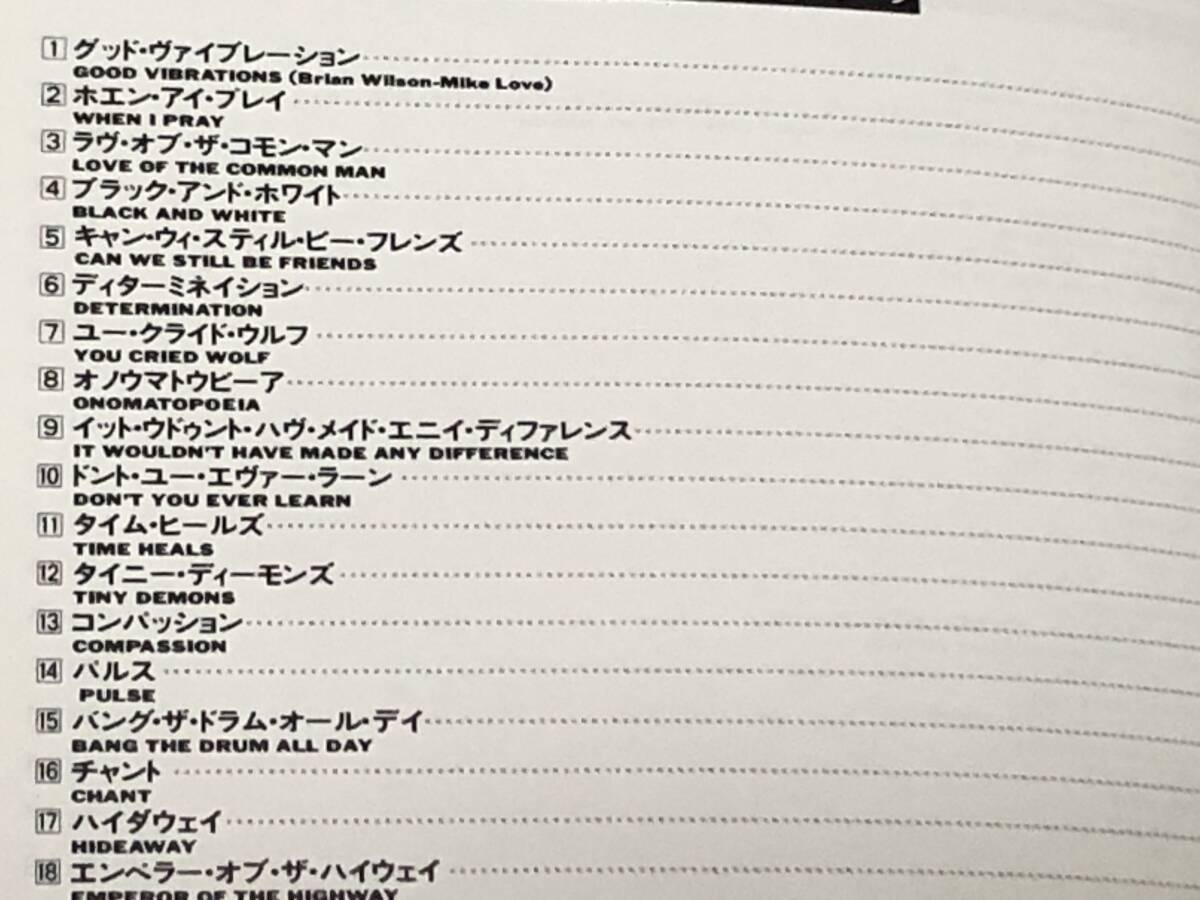 1 グッド・ヴァイブレーション
GOOD VIBRATIONS (Brian Wilson-Mike Love)
2 ホエン・アイ・プレイ
WHEN I PRAY
3 ラヴ・オブ・ザ・コモン・マン
LOVE OF THE COMMON MAN
4 ブラック・アンド・ホワイト
BLACK AND WHITE
5 キャン・ウィ・スティル・ビー・フレンズ
CAN WE STILL BE FRIENDS
6 ディターミネイション
DETERMINATION
7 ユー・クライド・ウルフ
YOU CRIED WOLF
8 オノウマトウピーア
ONOMATOPOEIA
9 イット・ウドゥント・ハヴ・メイド・エニイ・ディファレンス
IT WOULDN'T HAVE MADE ANY DIFFERENCE
10 ドント・ユー・エヴァー・ラーン
DON'T YOU EVER LEARN
11 タイム・ヒールズ
TIME HEALS
12 タイニー・ディーモンズ
TINY DEMONS
13 コンパッション
COMPASSION
14 パルス
PULSE
15 バング・ザ・ドラム・オール・デイ
BANG THE DRUM ALL DAY
16 チャント
CHANT
17 ハイダウェイ
HIDEAWAY
18 エンペラー・オブ・ザ・ハイウェイ
EMPEROR OF THE HIGHWAY